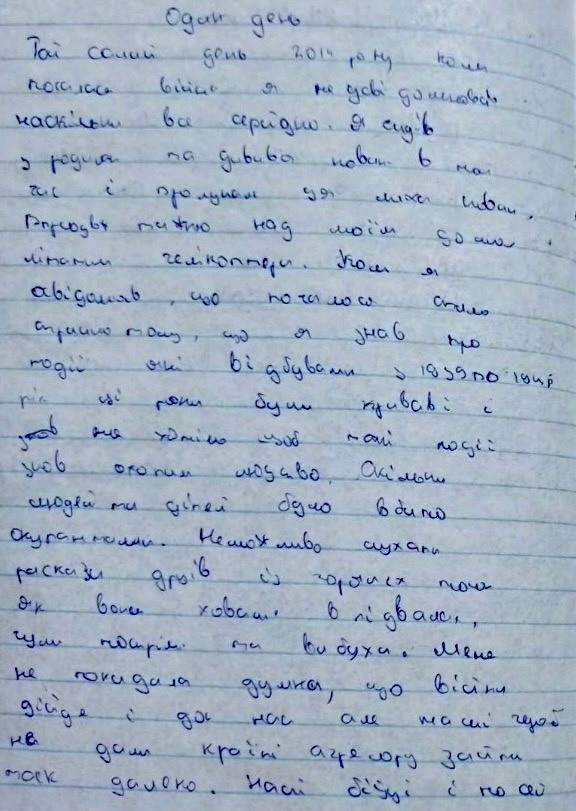 Один день
Той самий день 2014 року коли
почалась війна я не усвідомлював
наскільки все серйозно. Я сидів
з родиною та дивився новини в той
час і пролунала ця лиха
Впродовж тижню над моїм домом
літали гелікоптери. Коли я
свідомив, що почалося стало
страшно тому, що я знав про
події які відбували з 1939 по 1945
рік ці роки були криваві і
не хотіло щоб такі події
знов охопили людство. Скільки
людей та дітей було вбито
окупантами. Неможливо слухати
раскази друзів із горячих точок
як вони ховались в підвалах,
чули постріли та вибухи. Мене
не покидала думка, що війна
дійде і до нас але наші герої
не дали країні агресору зайти
так далеко. Наші бійці і по сей